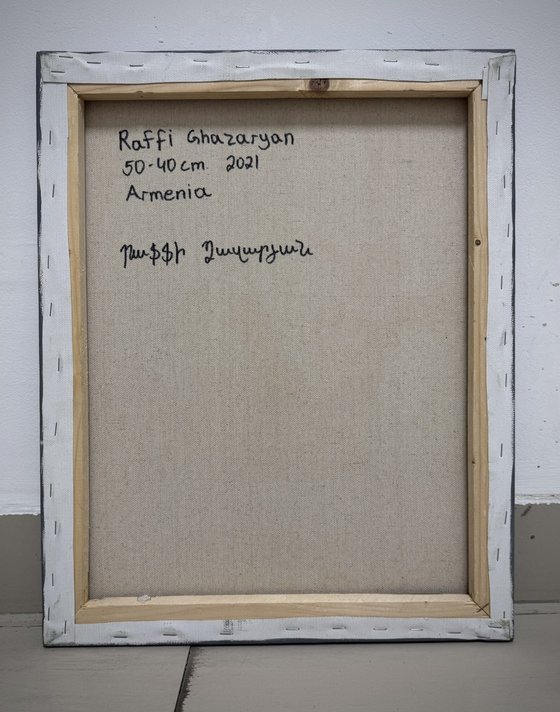 Raffi Ghazaryan
50-40cm. 2021
Armenia
Րաֆֆի Ղազարյան